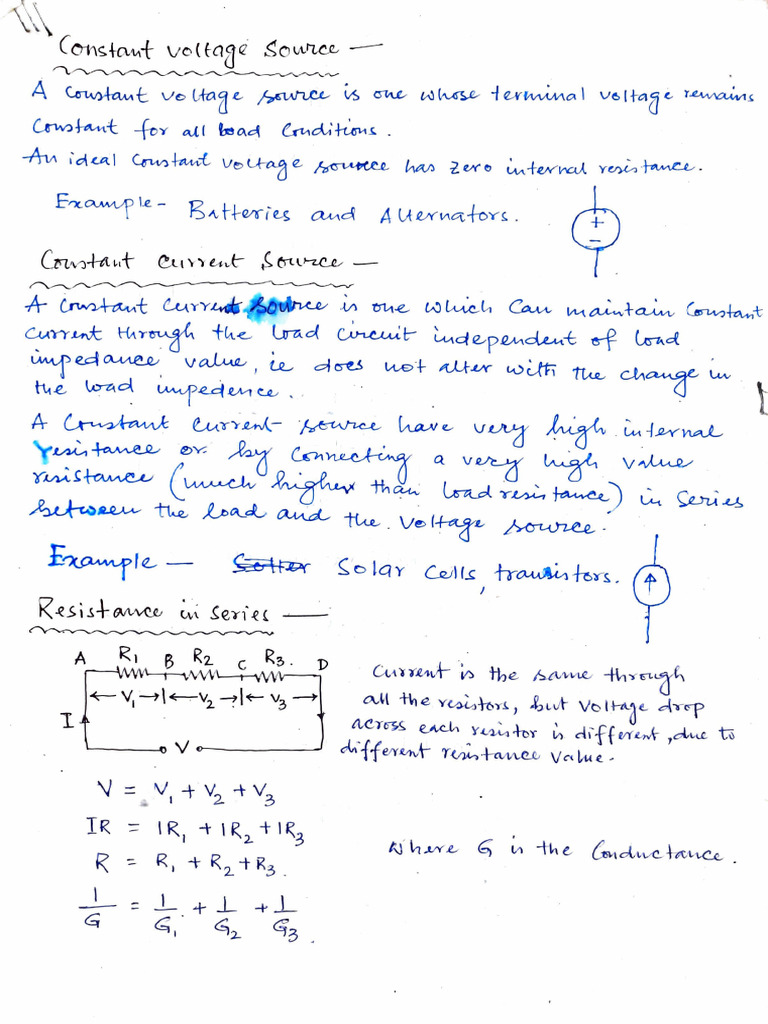 III
Constant voltage source —
A constant voltage source is one whose terminal voltage remains
constant for all load conditions.
An ideal constant voltage source has zero internal resistance.
Example - Batteries and Alternators.
+
−
Constant current source —
A constant current source is one which can maintain constant
current through the load circuit independent of load
impedance value, ie does not alter with the change in
the load impedence.
A constant current source have very high internal
resistance or by connecting a very high value
resistance (much higher than load resistance) in series
between the load and the voltage source.
Example — Solar cells, transistors.
Resistance in series —
A R1 B R2 C R3. D
V1 V2 V3
I
V
Current is the same through
all the resistors, but voltage drop
across each resistor is different, due to
different resistance value.
V = V1 + V2 + V3
IR = IR1 + IR2 + IR3
R = R1 + R2 + R3.
1/G = 1/G1 + 1/G2 + 1/G3.
where G is the conductance.